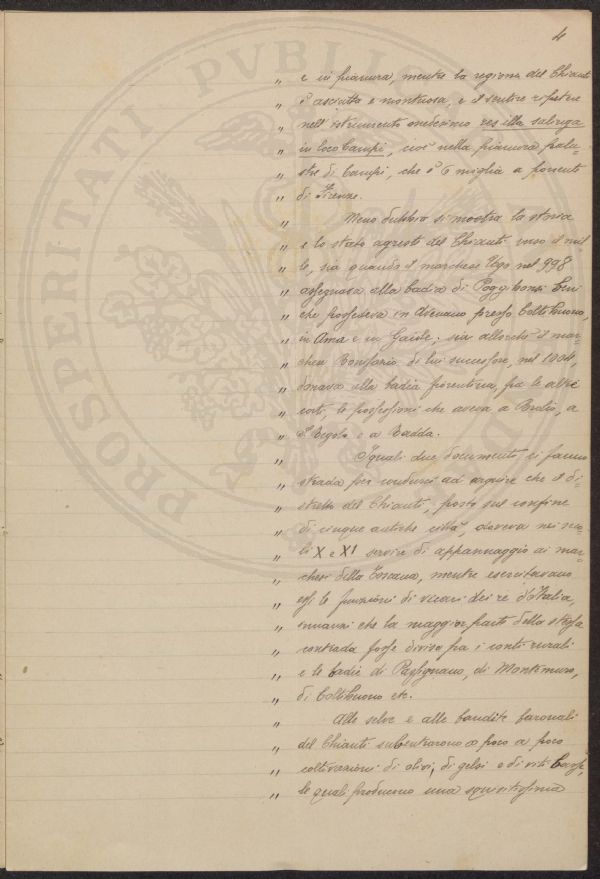 4
" e in pianura, mentre la regione del Chianti
" è asciutta e montuosa, e il sentire ripetere
" nell'istrumento medesimo res illa saliuga
" in loco Campi, cioè nella pianura palu-
" stre di Campi, che è 6 miglia a ponente
" di Firenze.
" Meno dubbia si mostra la storia
" e lo stato agreste del Chianti verso il mil-
" le, sia quando il marchese Ugo nel 998
" assegnava alla badia di Poggibonsi beni
" che possedeva in Avenano presso Coltibuono,
" in Ama e in Gaiole; sia allorchè il mar-
" chese Bonifazio di lui successore, nel 1004,
" donava alla badia fiorentina, fra le altre
" corti, le possessioni che aveva a Brolio, a
" S. Regolo e a Radda.
" I quali due documenti ci fanno
" strada per condurci ad arguire che il di-
" stretto del Chianti, posto sul confine
" di cinque antiche città, doveva nei seco-
" li X e XI servire di appannaggio ai mar-
" chesi della Toscana, mentre esercitavano
" essi le funzioni di vicari dei re d'Italia,
" innanzi che la maggior parte della stessa
" contrada fosse divisa fra i conti rurali
" e le badie di Passignano, di Montemuro,
" di Coltibuono etc.
" Alle selve e alle bandite baronali
" del Chianti subentrarono a poco a poco
" coltivazioni di olivi, di gelsi e di viti basse,
" le quali producono una squisitissima
PROSPERITATI PVBLICAE